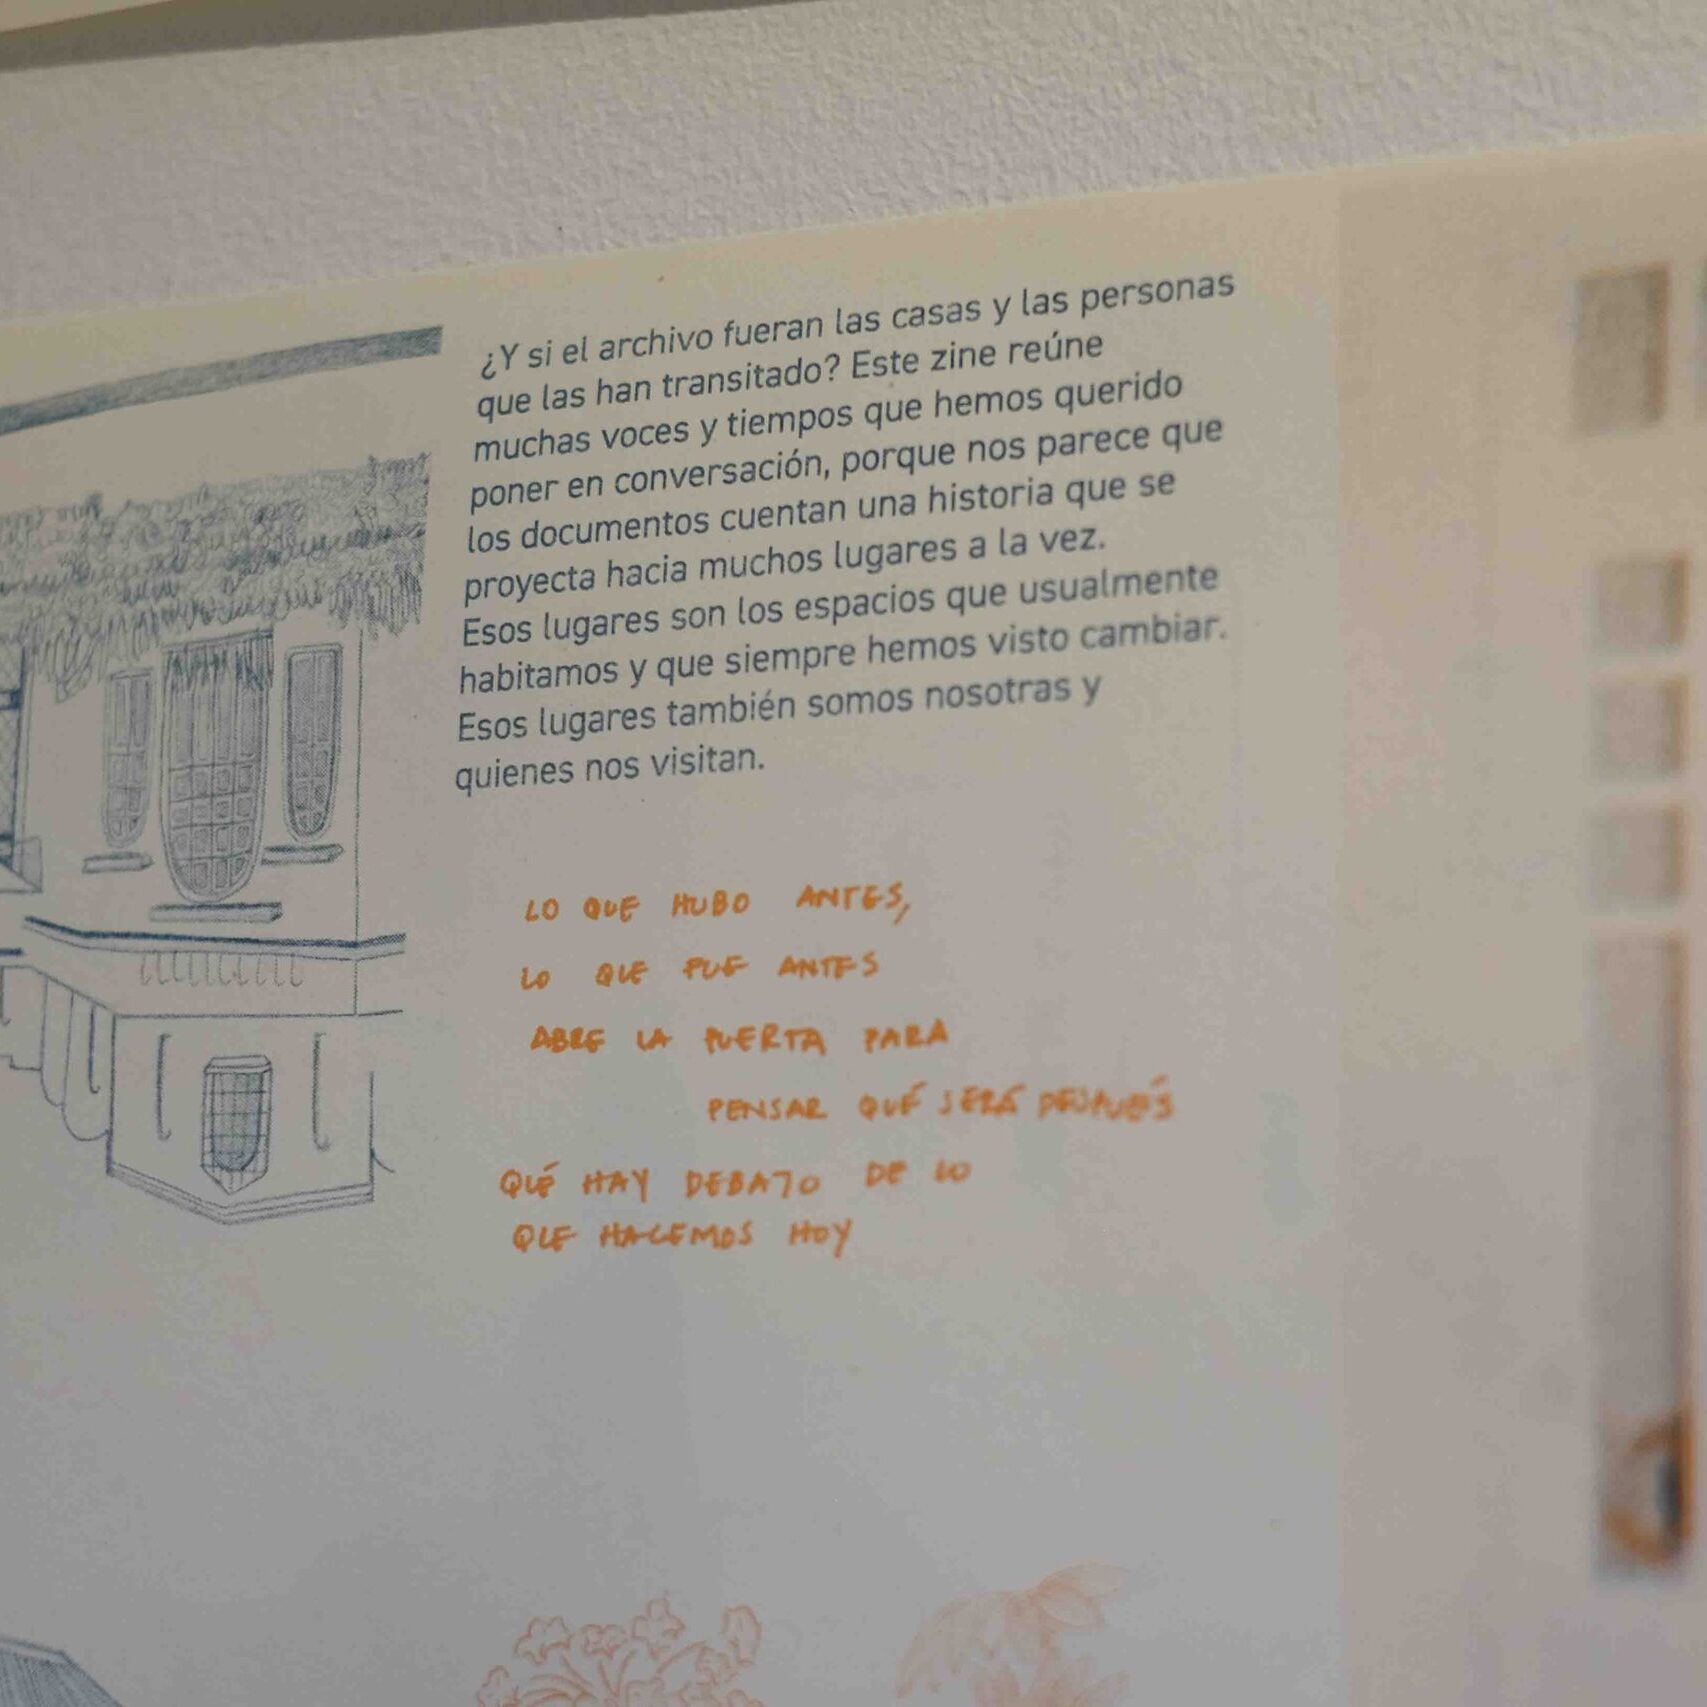 ¿Y si el archivo fueran las casas y las personas
que las han transitado? Este zine reúne
muchas voces y tiempos que hemos querido
poner en conversación, porque nos parece que
los documentos cuentan una historia que se
proyecta hacia muchos lugares a la vez.
Esos lugares son los espacios que usualmente
habitamos y que siempre hemos visto cambiar.
Esos lugares también somos nosotras y
quienes nos visitan.
LO QUE HUBO ANTES,
LO QUE FUE ANTES
ABRE LA PUERTA PARA
PENSAR QUÉ SERÁ DESPUÉS
QUÉ HAY DEBAJO DE LO
QUE HACEMOS HOY